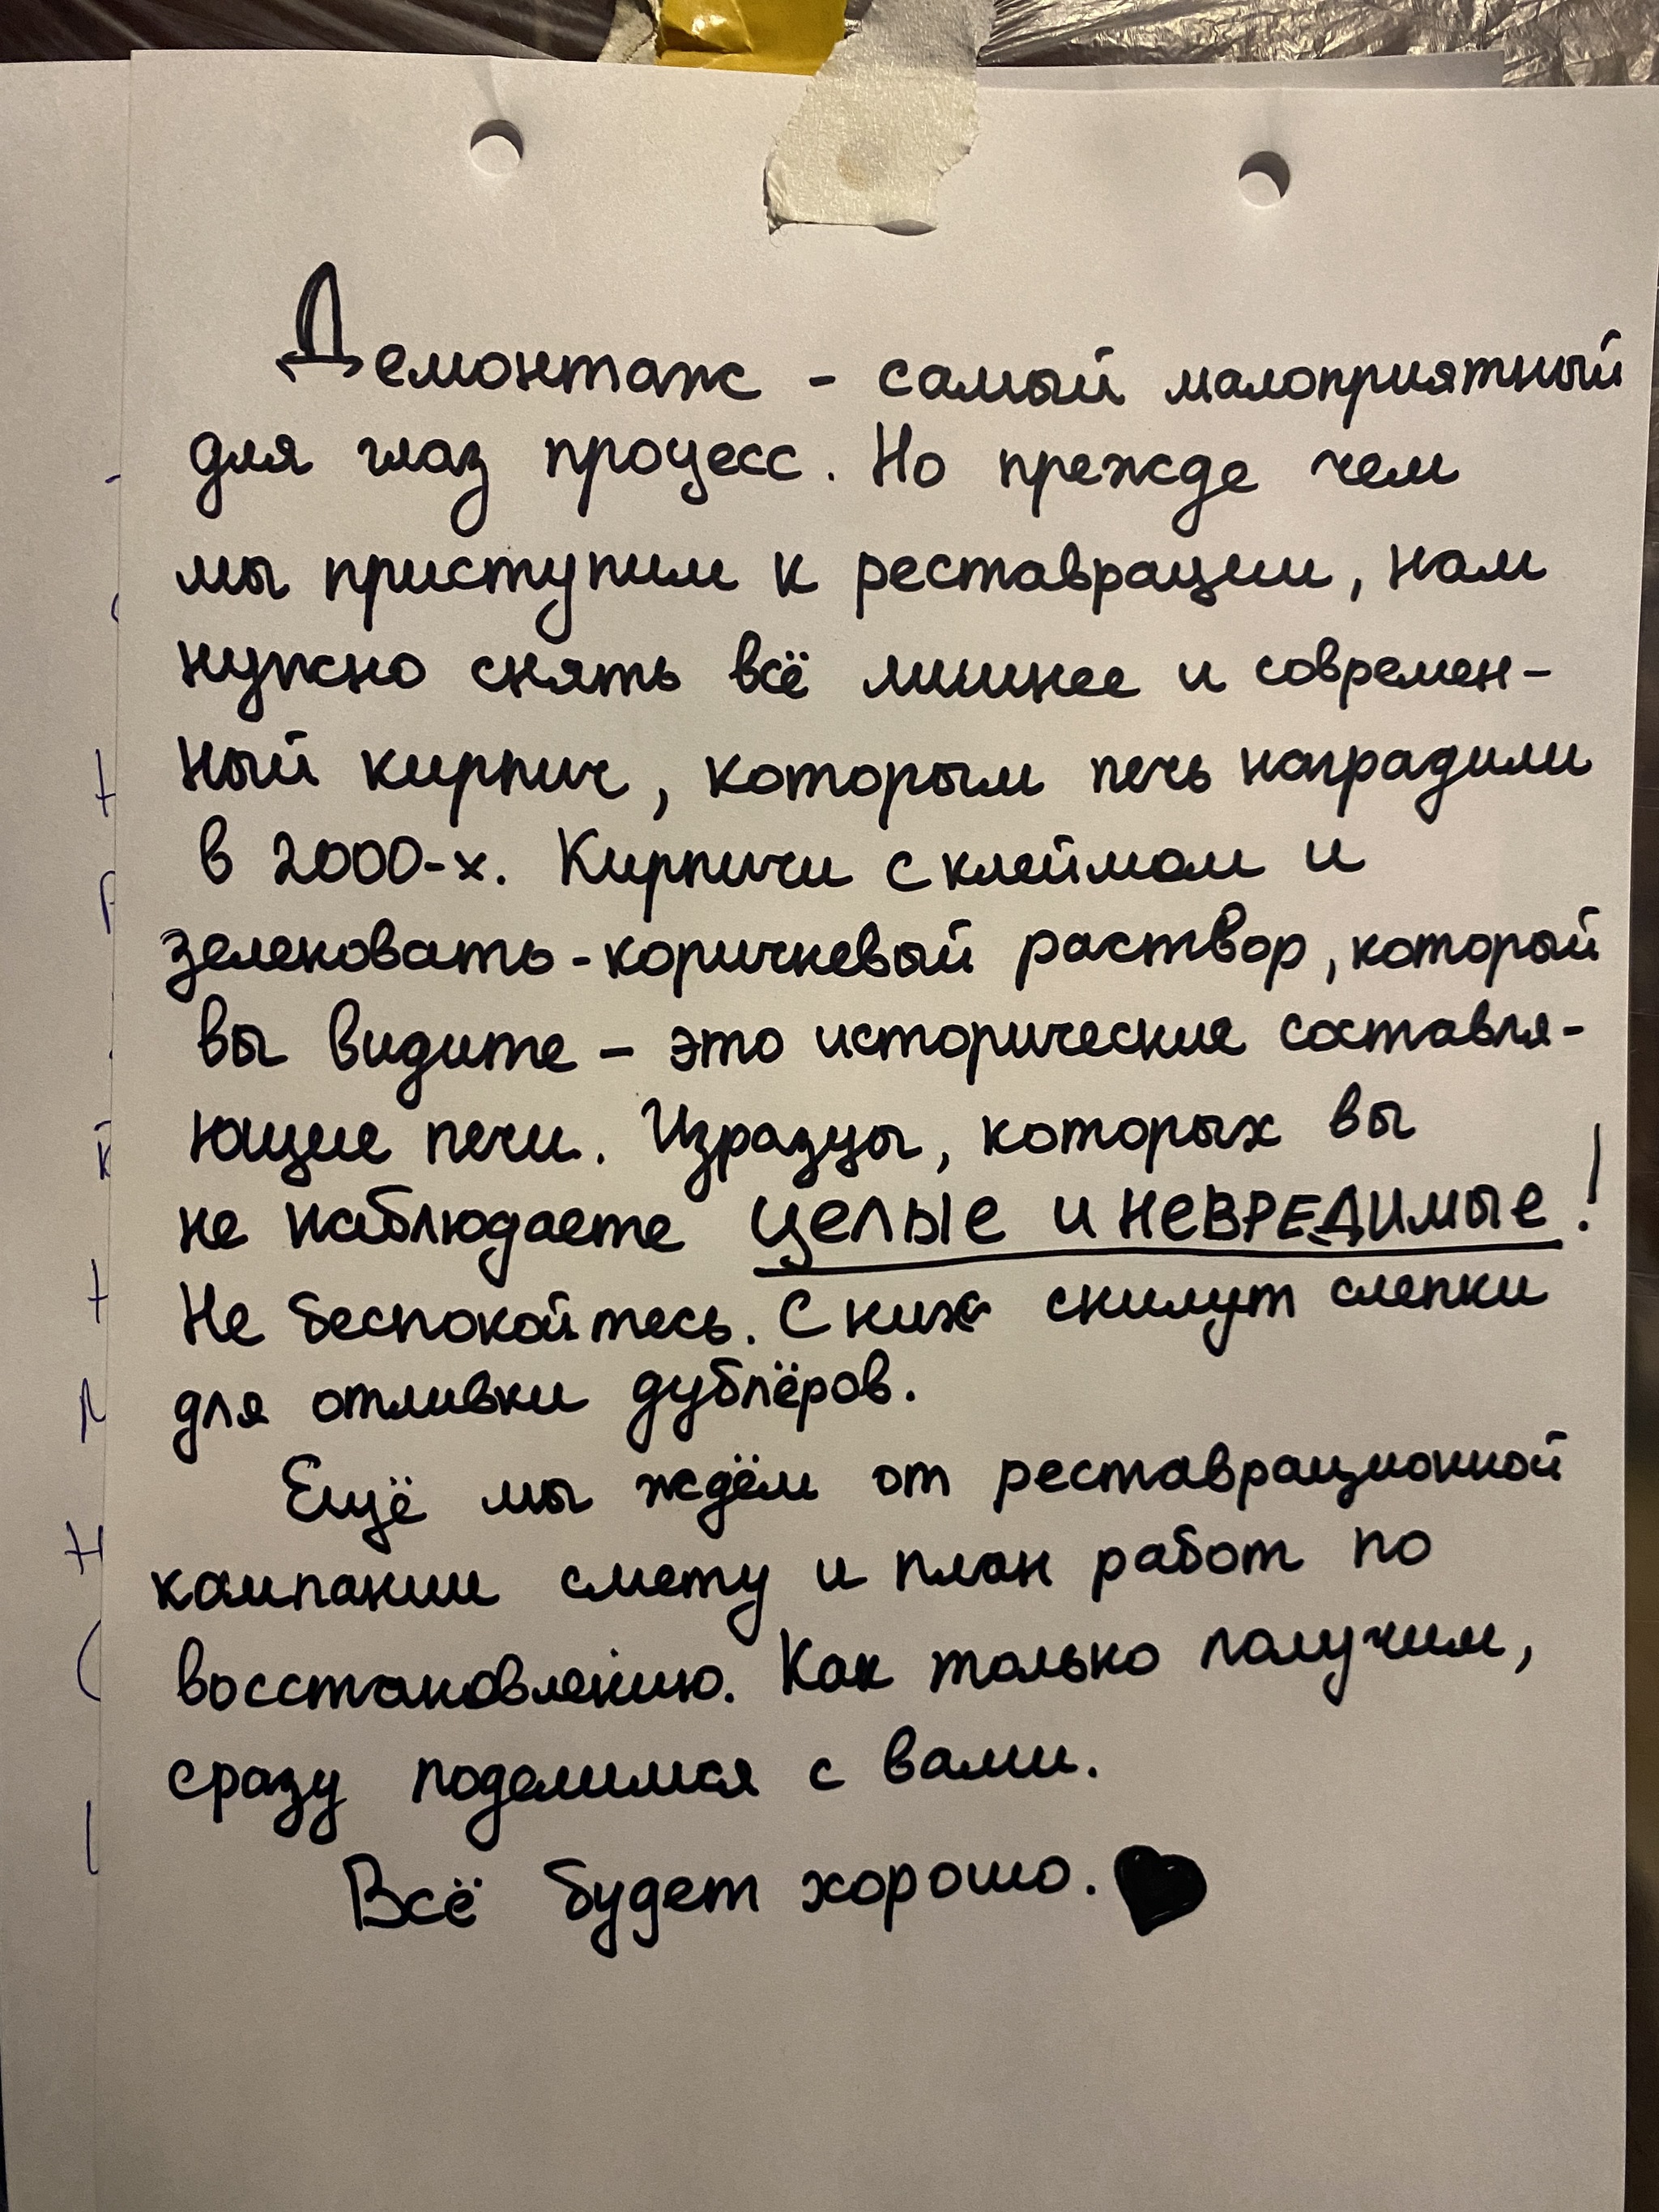 Демонтаж - самый малоприятный
для глаз процесс. Но прежде чем
мы приступим к реставрации, нам
нужно снять всё лишнее и современ-
ный кирпич, которым печь наградили
в 2000-х. Кирпичи с клеймом и
зеленовато-коричневый раствор, который
вы видите – это исторические составля-
ющие печи. Изразцы, которых вы
не наблюдаете целые и невредимые!
Не беспокойтесь. С них снимут слепки
для отливки дублёров.
Ещё мы ждём от реставрационной
компании смету и план работ по
восстановлению. Как только получим,
сразу поделимся с вами.
Всё будет хорошо. ♥